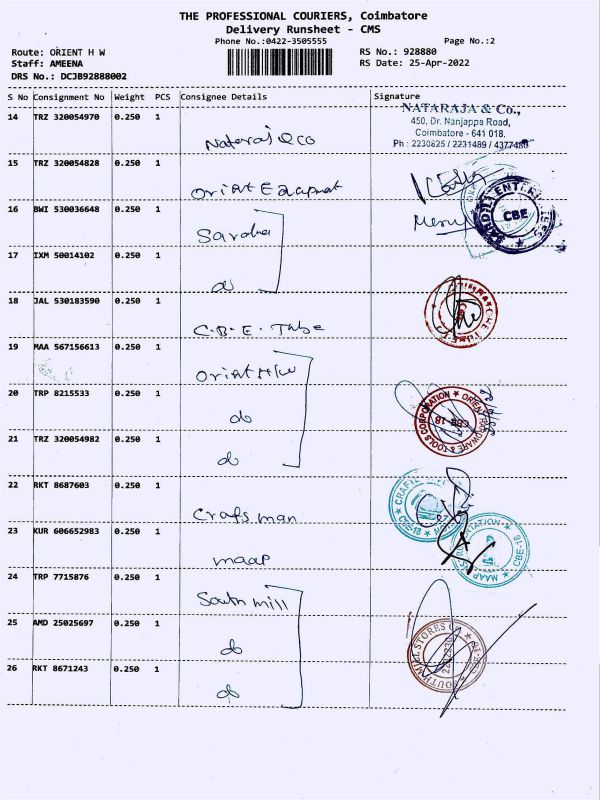 THE PROFESSIONAL COURIERS, Coimbatore
Delivery Runsheet - CMS
Phone No.:0422-3505555
Page No.:2
Route: ORIENT H W
RS No.: 928880
Staff: AMEENA
RS Date: 25-Apr-2022
DRS No.: DCJB92888002
S No Consignment No Weight PCS Consignee Details Signature
14 TRZ 320054970 0.250 1 Nataraj & Co
NATARAJA & Co.,
450, Dr. Nanjappa Road,
Coimbatore - 641 018.
Ph : 2230825 / 2231489 /
15 TRZ 320054828 0.250 1
16 BWI 530036648 0.250 1
CBE
17 IXM 50014102 0.250 1 do
18 JAL 530183590 0.250 1 C.B.E. Tube
19 MAA 567156613 0.250 1 Orient H/W
20 TRP 8215533 0.250 1 do
ORIENT HARDWARE & TOOLS CORPORATION ★
CBE-18
21 TRZ 320054982 0.250 1 do
22 RKT 8687603 0.250 1 Crafsman
23 KUR 606652983 0.250 1 maap
MAAP
CBE-18
24 TRP 7715876 0.250 1 South mill
25 AMD 25025697 0.250 1 do
26 RKT 8671243 0.250 1 do
SOUTHMILL STORES